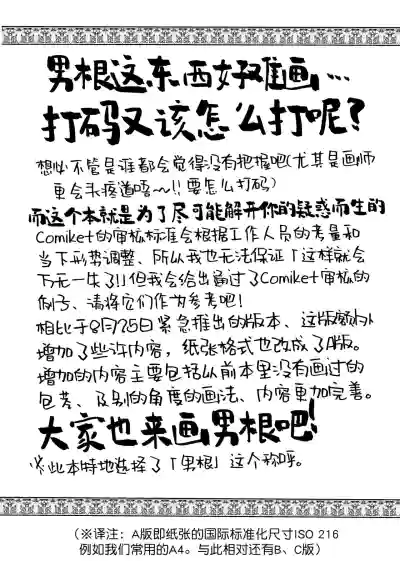 男根这东西好难画…
打码又该怎么打呢?
想必不管是谁都会觉得没有把握吧(尤其是画师
更会头疼道嘻~!!要怎么打码)
而这个本就是为了尽可能解开你的疑惑而生的
Comiket的审核标准会根据工作人员的考量和
当下形势调整、所以我也无法保证「这样就会
万无一失了!」但我会给出通过了Comiket审核的
例子、请将它们作为参考吧!
相比于8月25日紧急推出的版本、这版额外
增加了些许内容,纸张格式也改成了A版。
增加的内容主要包括从前本里没有画过的
包茎、及别的角度的画法、内容更加完善。
大家也来画男根吧!
※此本特地选择了「男根」这个称呼。
(※译注:A版即纸张的国际标准化尺寸ISO 216
例如我们常用的A4。与此相对还有B、C版)